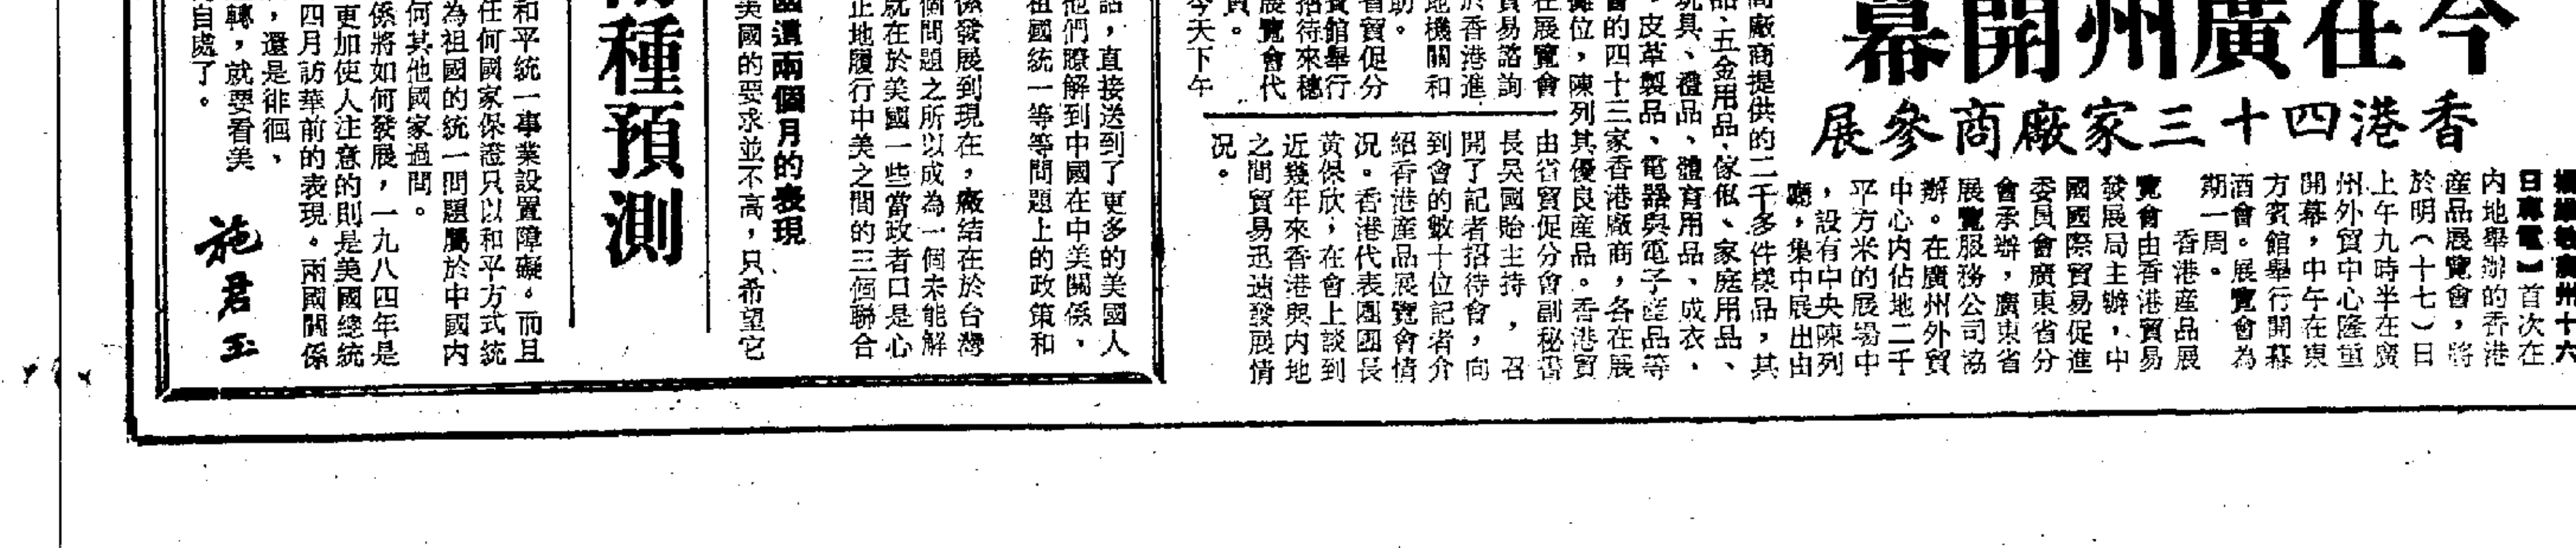 今在廣州開幕
香港四十三家廠商參展
日專電】首次在
內地舉辦的香港
產品展覽會，將
於明（十七）日
上午九時半在廣
州外貿中心隆重
開幕，中午在東
方賓館舉行開幕
酒會。展覽會為
期一周。
香港產品展
覽會由香港貿易
發展局主辦，中
國國際貿易促進
委員會廣東省分
會承辦，廣東省
展覽服務公司協
辦。在廣州外貿
中心內佔地二千
平方米的展場中
，設有中央陳列
廳，集中展出由
廠商提供的二千多件樣品，其
品、五金用品、傢俬、家庭用品、
玩具、禮品、體育用品、成衣、
，皮革製品、電器與電子產品等
會的四十三家香港廠商，各在展
攤位，陳列其優良產品。香港貿
在展覽會
貿易諮詢
於香港進
地機關和
省貿促分
助。
賓館舉行
招待來穗
展覽會代
員。
今天下午
由省貿促分會副秘書
長吳國貽主持，召
開了記者招待會，向
到會的數十位記者介
紹香港產品展覽會情
况。香港代表團團長
黃保欣，在會上談到
近幾年來香港與內地
之間貿易迅速發展情
况。
種預測
話，直接送到了更多的美國人
他們瞭解到中國在中美關係，
祖國統一等等問題上的政策和
係發展到現在，癥結在於台灣
個問題之所以成為一個未能解
就在於美國一些當政者口是心
正地履行中美之間的三個聯合
國這兩個月的表現
美國的要求並不高，只希望它
和平統一事業設置障礙。而且
任何國家保證只以和平方式統
為祖國的統一問題屬於中國內
何其他國家過問。
係將如何發展，一九八四年是
更加使人注意的則是美國總統
四月訪華前的表現。兩國關係
，還是徘徊，
轉，就要看美
自處了。
施君玉